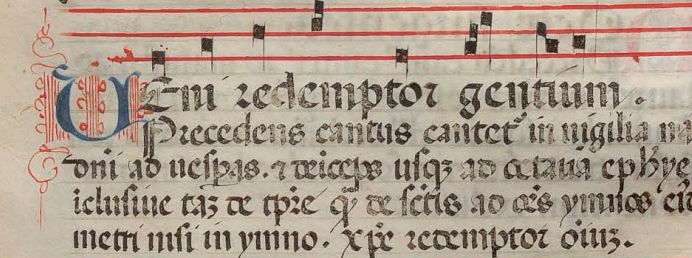 UEni redemptor gentium.
Precedens cantus cantet᷑ in uigilia na
dnī ad uesꝑas. ⁊ deiceps usqꝫ ad octauā ephye
iclusiue tā de tp̄re de sctīs ad oēs ymnos
metri nisi in ymno. xp̄e redemptor oīuꝫ.